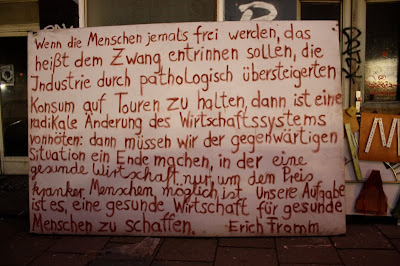 Wenn die Menschen jemals frei werden, das
heißt dem Zwang entrinnen sollen, die
Industrie durch pathologisch übersteigerten
Konsum auf Touren zu halten, dann ist eine
radikale Änderung des Wirtschaftssystems
vonnöten: dann müssen wir der gegenwärtigen
Situation ein Ende machen, in der eine
gesunde Wirtschaft nur um dem Preis
kranker Menschen möglich ist. Unsere Aufgabe
ist es, eine gesunde Wirtschaft für gesunde
Menschen zu schaffen. Erich Fromm